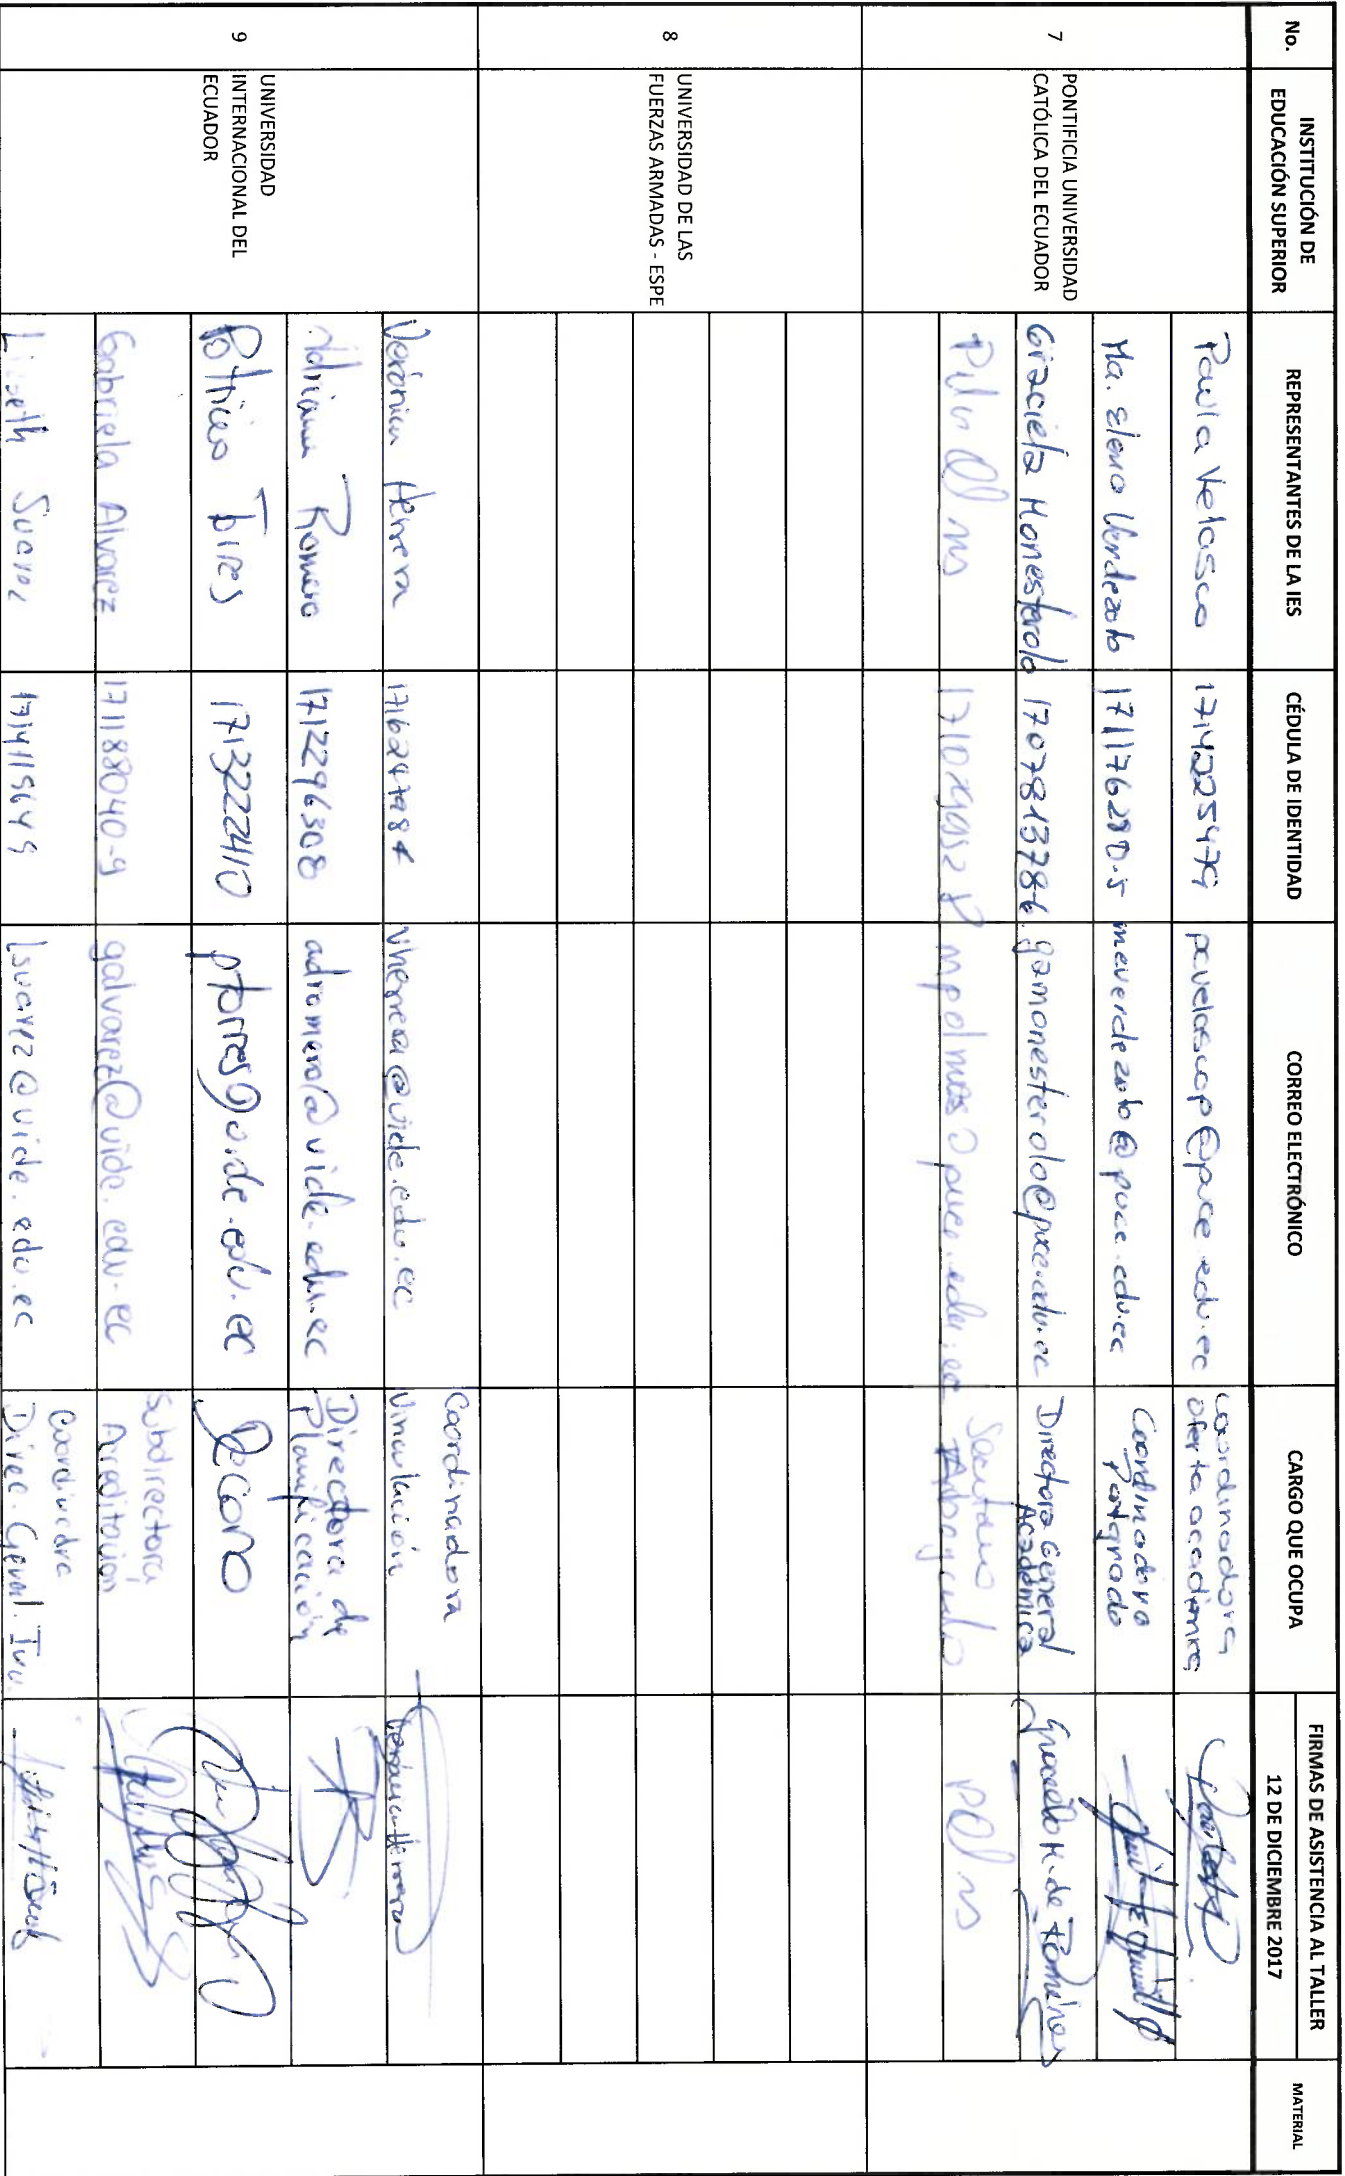 No.
INSTITUCIÓN DE
EDUCACIÓN SUPERIOR
REPRESENTANTES DE LA IES
CÉDULA DE IDENTIDAD
CORREO ELECTRÓNICO
CARGO QUE OCUPA
FIRMAS DE ASISTENCIA AL TALLER
12 DE DICIEMBRE 2017
MATERIAL
7
PONTIFICIA UNIVERSIDAD
CATÓLICA DEL ECUADOR
Paula Velasco
1714225479
pavelascop@puce.edu.ec
Coordinadora
oferta académica
Ma. Elena Verdezoto
171176280-5
meverdezoto@puce.edu.ec
Coordinadora
Postgrado
Graciela Monesterolo
1707813786
gamonesterolo@puce.edu.ec
Directora General
Académica
Graciela M. de
8
UNIVERSIDAD DE LAS
FUERZAS ARMADAS - ESPE
9
UNIVERSIDAD
INTERNACIONAL DEL
ECUADOR
Verónica Herrera
vherrera@uide.edu.ec
Coordinadora
Vinculación
Verónica Herrera
Adriana Romero
1712296308
adromero@uide.edu.ec
Directora de
Planificación
Patricio Torres
1713222410
ptorres@uide.edu.ec
Decano
Gabriela Alvarez
171188040-9
galvarez@uide.edu.ec
Subdirectora
Acreditación
Lisseth Suarez
lsuarez@uide.edu.ec
Coordinadra
Direc.